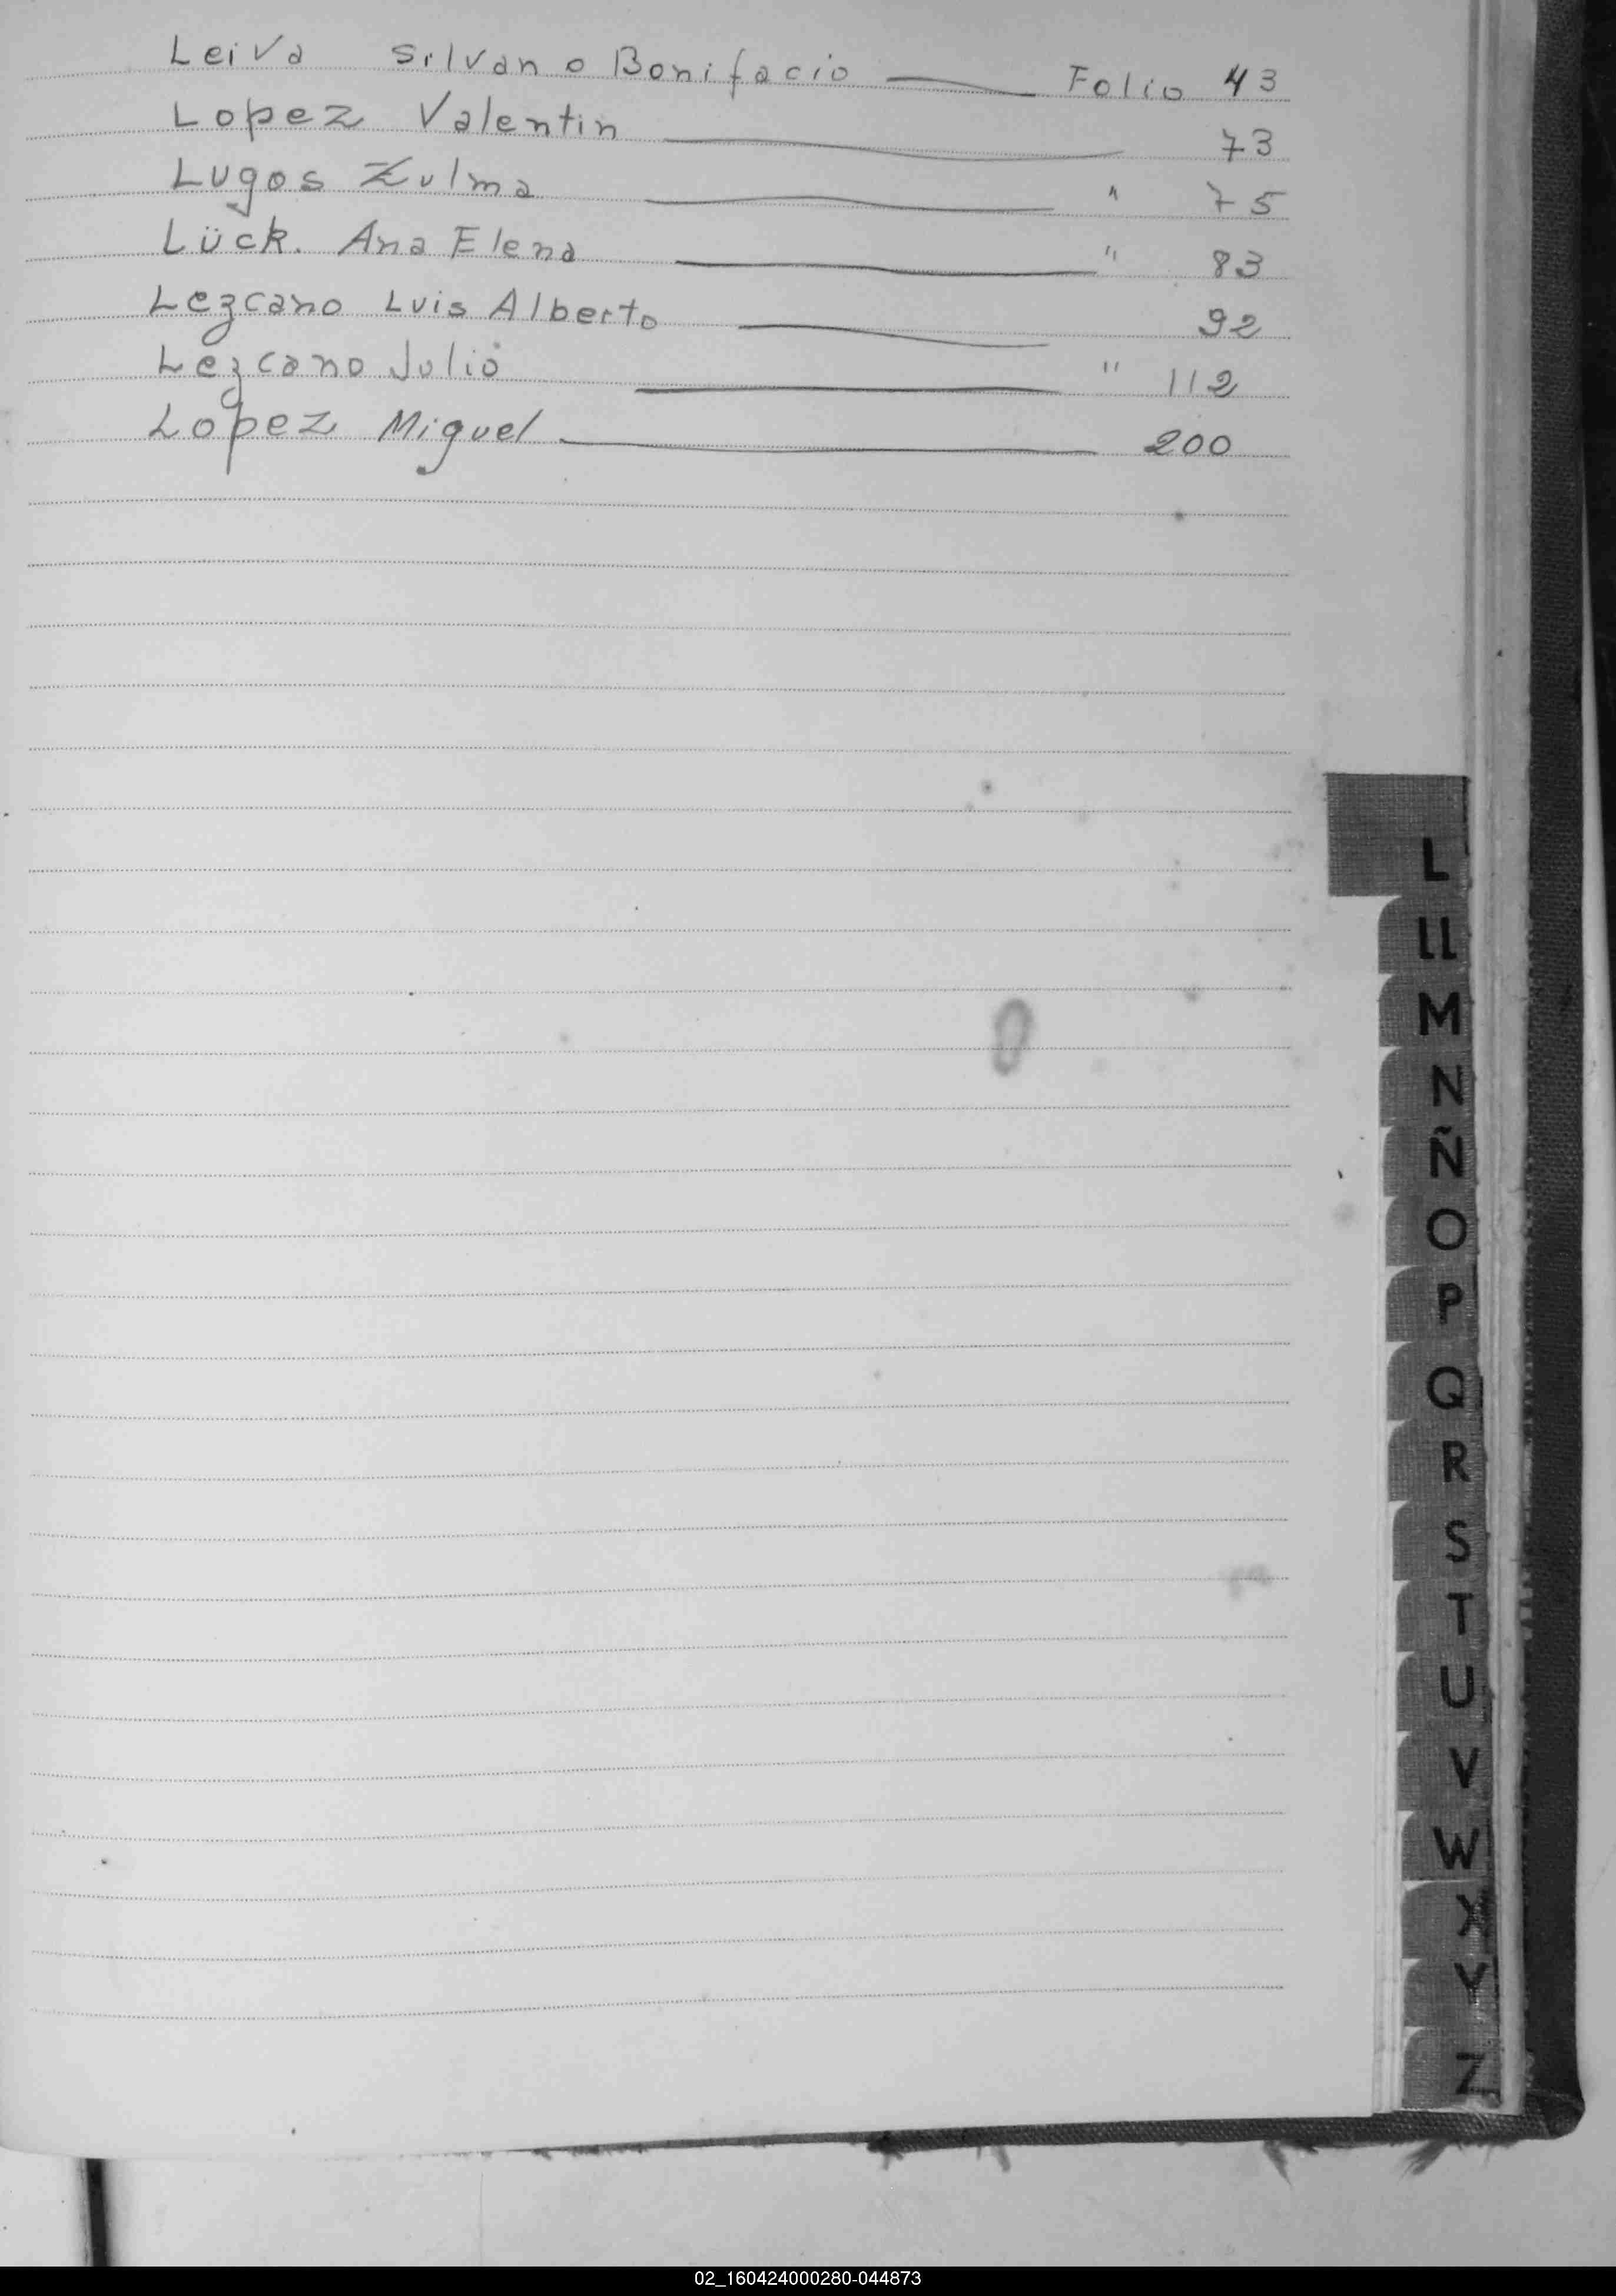 Leiva Silvano Bonifacio — Folio 43
Lopez Valentin — 73
Lugos Zulma — " 75
Lück. Ana Elena — " 83
Lezcano Luis Alberto — 92
Lezcano Julio — " 112
Lopez Miguel — 200
L
Ll
M
N
Ñ
O
P
Q
R
S
T
U
V
W
X
Y
Z
02_160424000280-044873